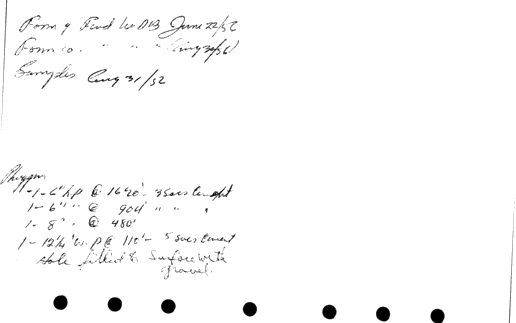 Form 9 Filed W.D.B June 22/56
Form 10. " " " Aug 30/56
Samples Aug 31/52
Pluggen
1-6" W.P @ 1690'- 3 Sacs Cement
1-6" " @ 904' " " "
1-8" " @ 480'
1-12¼" W.P @ 110'- 5 Sacs Cement
Hole filled to Surface with
gravel.